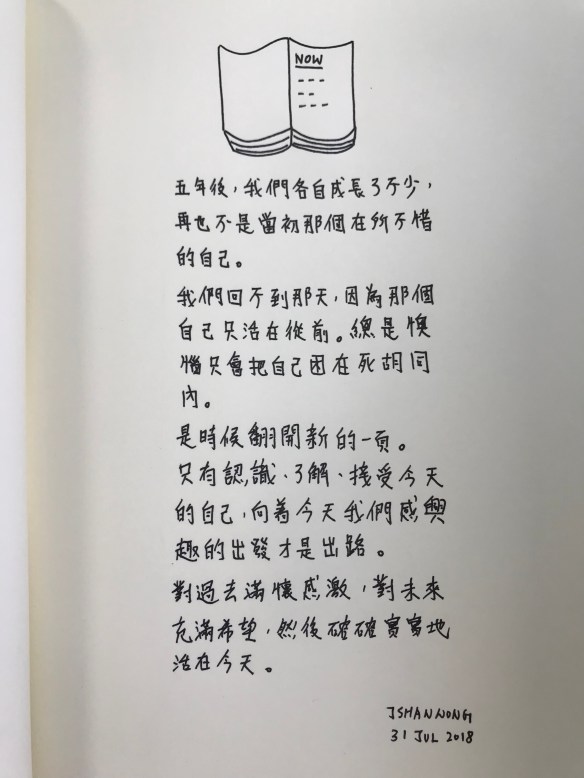 NOW
五年後，我們各自成長了不少，
再也不是當初那個在所不惜
的自己。
我們回不到那天，因為那個
自己只活在從前。總是懊
惱只會把自己困在死胡同
內。
是時候翻開新的一頁。
只有認識、了解、接受今天
的自己，向着今天我們感興
趣的出發才是出路。
對過去滿懷感激，對未來
充滿希望，然後確確實實地
活在今天。
JSHANNONG
31 JUL 2018